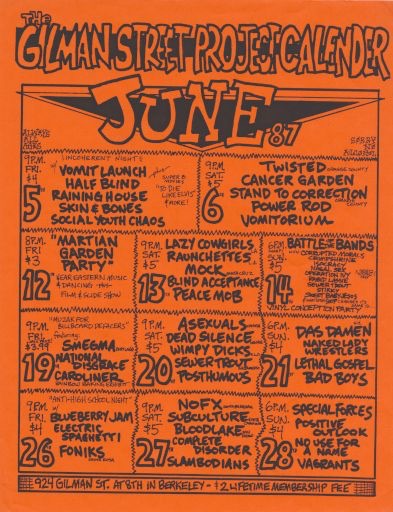 THE
GILMAN STREET PROJECT CALENDER
JUNE '87
ALWAYS ALL AGES
SORRY NO ALCOHOL
9PM. FRI. $4 5TH
"INCOHERENT NIGHT"
VOMIT LAUNCH
HALF BLIND
RAINING HOUSE
SKIN & BONES
SOCIAL YOUTH CHAOS
plus SUPER 8 MOVIES
"TO DIE LIKE ELVIS"
& MORE!
9P.M. SAT. $5 6TH
TWISTED
CANCER GARDEN ORANGE COUNTY
STAND TO CORRECTION
POWER ROD ORANGE COUNTY
VOMITORIUM
8P.M. FRI. $3 12TH
"MARTIAN
GARDEN
PARTY"
EAR EASTERN MUSIC
& DANCING
FILM & SLIDE SHOW
9P.M. SAT. $5 13TH
LAZY COWGIRLS
RAUNCHETTES
MOCK SANTA CRUZ
BLIND ACCEPTANCE
PEACE MOB
6P.M. SUN. $5 14TH
BATTLE OF THE BANDS
CORRUPTED MORALS
CRIMPSHRINE
ISOCRACY
NASAL SEX
OPERATION IVY
RABID LASSIE
SEWER TROUT
STIKKY
SWEET BABY JESUS
VINYL CONCEPTION PARTY
9P.M. FRI. $3.99 19TH
"MUZAK FOR
BILLBOARD DEFACERS"
featuring
SMEGMA PORTLAND
NATIONAL
DISGRACE
CAROLINER
RAINBOW
9P.M. SAT. $5 20TH
ASEXUALS
DEAD SILENCE
WIMPY DICKS
SEWER TROUT
POSTHUMOUS
6P.M. SUN. $4 21ST
DAS DAMEN
NAKED LADY
WRESTLERS
LETHAL GOSPEL
BAD BOYS
9P.M. FRI. $4 26TH
"ANTI-HIGH SCHOOL NIGHT"
BLUEBERRY JAM
ELECTRIC
SPAGHETTI
FONIKS
9P.M. SAT. $5 27TH
NOFX
SUBCULTURE
BLOODLAKE
COMPLETE
DISORDER
SLAMBODIANS
6P.M. SUN. $4 28TH
SPECIAL FORCES
POSITIVE
OUTLOOK
NO USE FOR
A NAME
VAGRANTS
924 GILMAN ST. AT 8TH IN BERKELEY - $2 LIFETIME MEMBERSHIP FEE